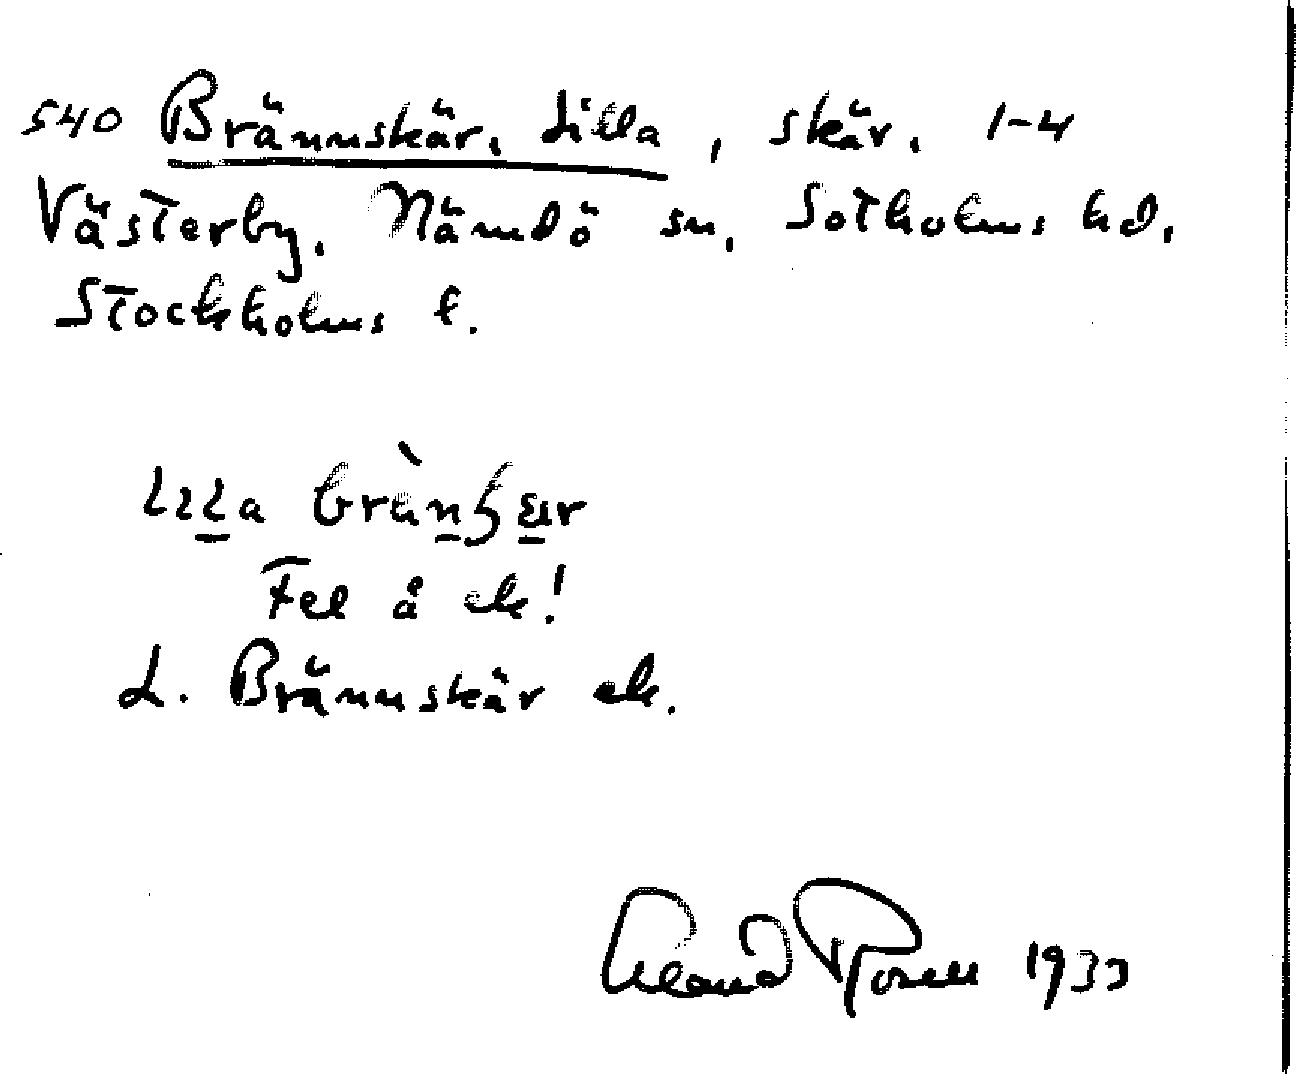 540 Brännskär, Lilla, skär. 1-4
Västerby. Nämdö sn. Sotholms hd.
Stockholms l.
Fel å ek!
L. Brännskär ek.
1933